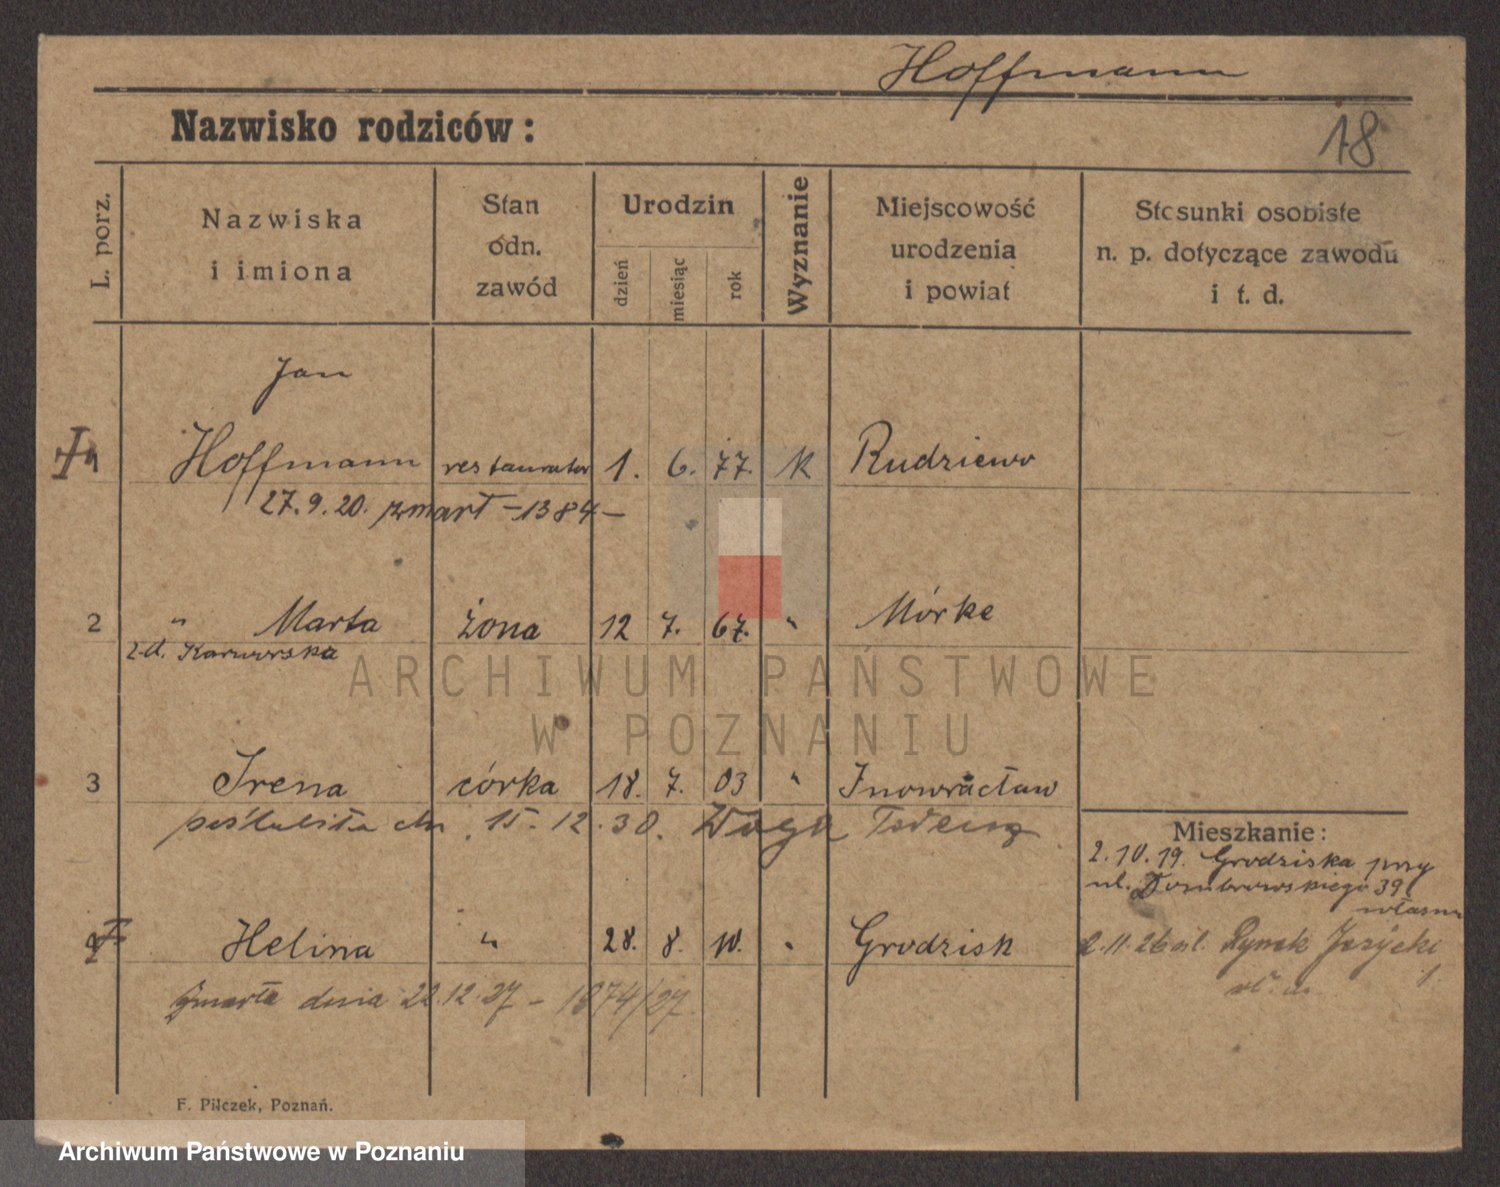 Hoffmann
Nazwisko rodziców:
18
L. porz.
Nazwiska
i imiona
Stan
odn.
zawód
Urodzin
dzień
miesiąc
rok
Wyznanie
Miejscowość
urodzenia
i powiat
Stosunki osobiste
n. p. dotyczące zawodu
i t. d.
Jan
1 Hoffmann restaurator 1. 6. 77. K Rudziewo
27.9.20. zmarł – 1384 –
2 " Marta żona 12 7. 67. " Mórke
z d. Karwowska
ARCHIWUM PAŃSTWOWE
W POZNANIU
3 Irena córka 18. 7. 03 " Inowracław
poślubiła dn. 15.12.30.
Mieszkanie:
2.10.19. Grodziska przy
ul. Dombrowskiego 39
własne
Helina " 28. 8. 10. " Grodzisk
2.11.26 ul. Rynek Jeżycki
1.
Zmarła dnia 22.12.27 – 1874/27.
F. Pilczek, Poznań.
Archiwum Państwowe w Poznaniu